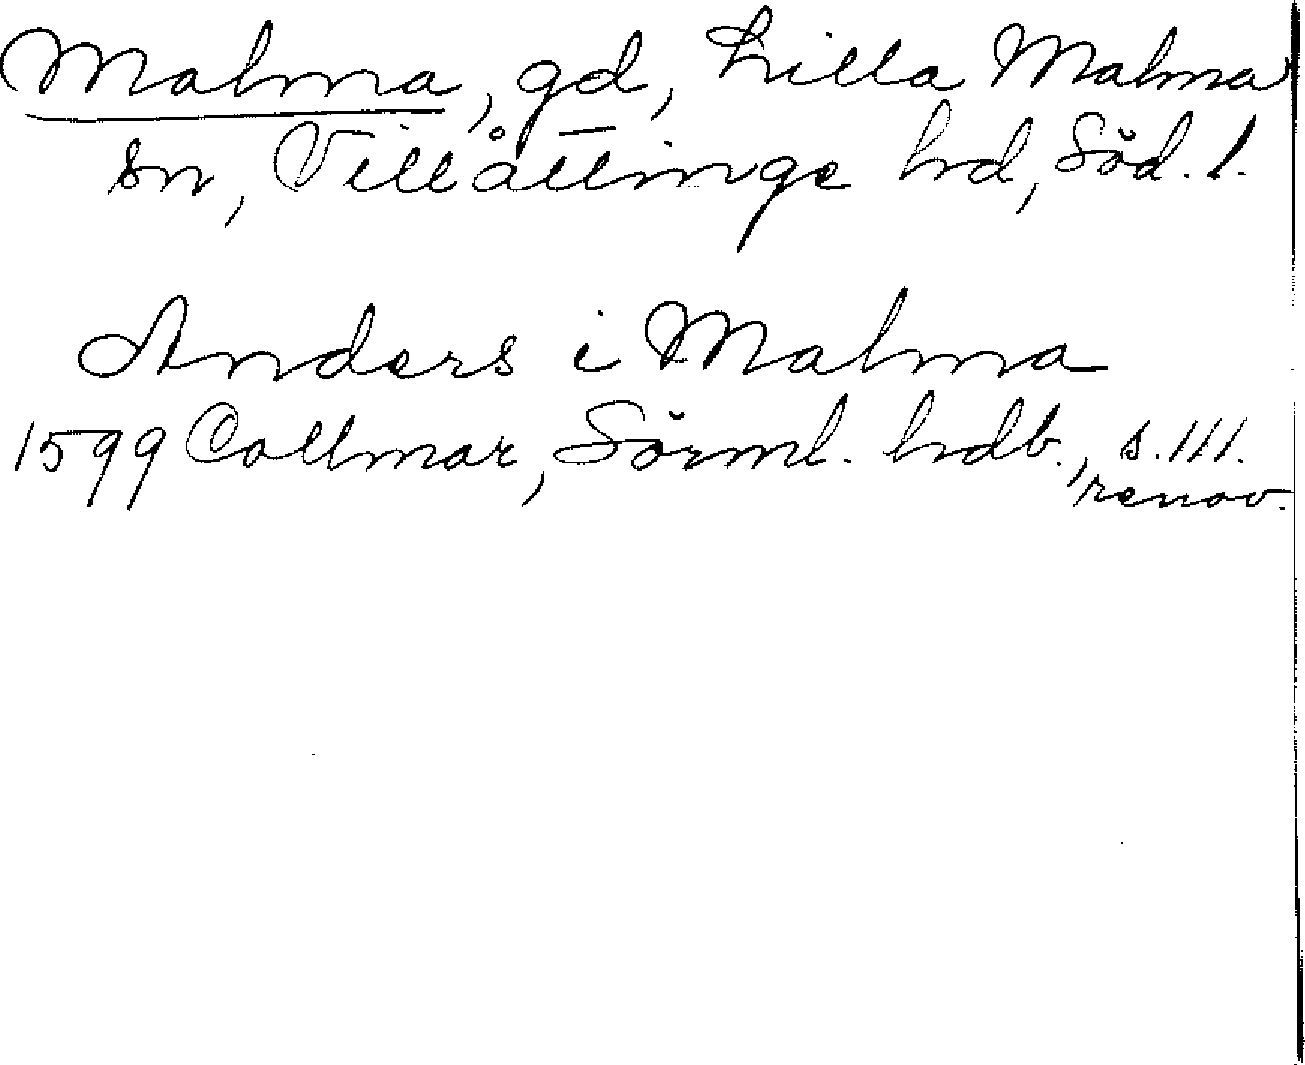 Malma, gd, Lilla Malma
sn, Villåttinge hd, Söd. l.
Anders i Malma
1599 Collmar, Sörml. hdb., s. 111.
renov.